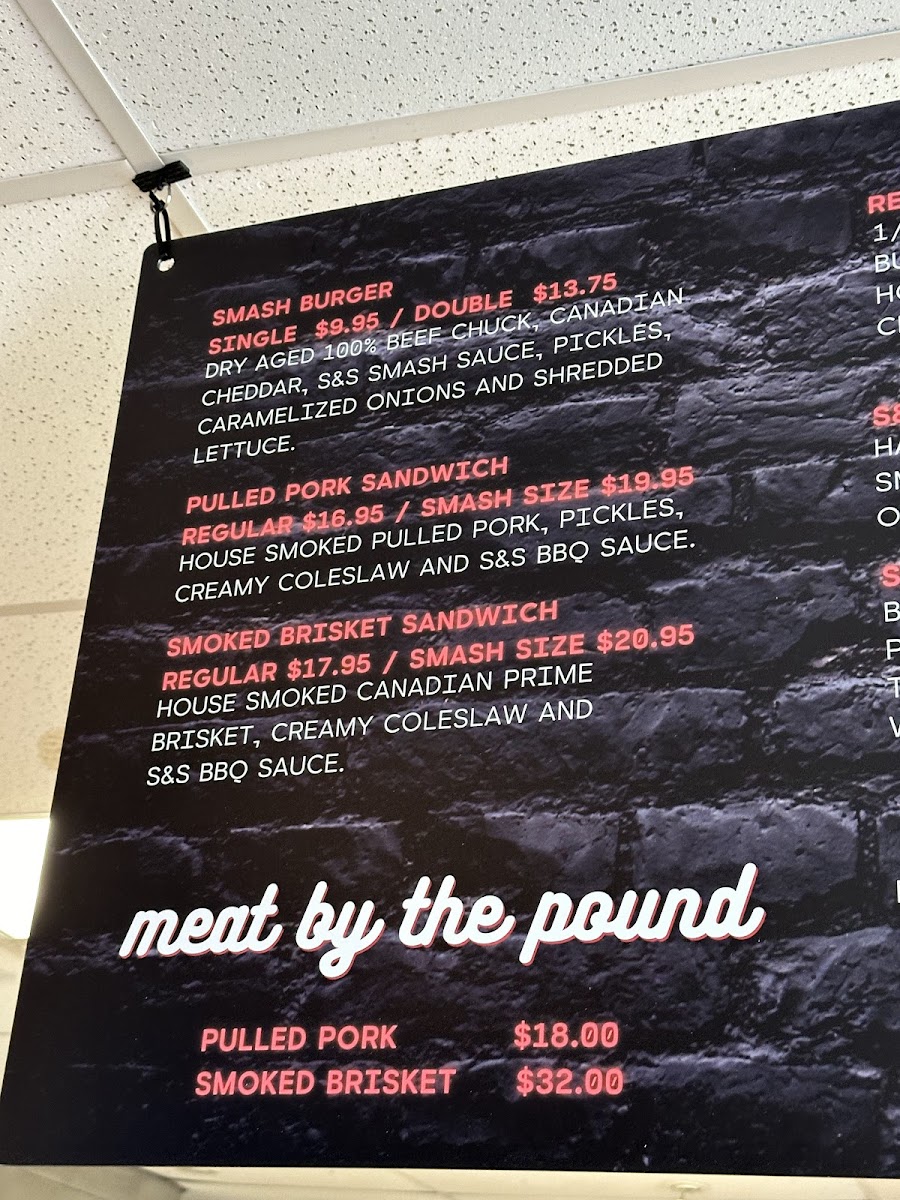 SMASH BURGER
SINGLE $9.95 / DOUBLE $13.75
DRY AGED 100% BEEF CHUCK, CANADIAN
CHEDDAR, S&S SMASH SAUCE, PICKLES,
CARAMELIZED ONIONS AND SHREDDED
LETTUCE.
PULLED PORK SANDWICH
REGULAR $16.95 / SMASH SIZE $19.95
HOUSE SMOKED PULLED PORK, PICKLES,
CREAMY COLESLAW AND S&S BBQ SAUCE.
SMOKED BRISKET SANDWICH
REGULAR $17.95 / SMASH SIZE $20.95
HOUSE SMOKED CANADIAN PRIME
BRISKET, CREAMY COLESLAW AND
S&S BBQ SAUCE.
meat by the pound
PULLED PORK $18.00
SMOKED BRISKET $32.00